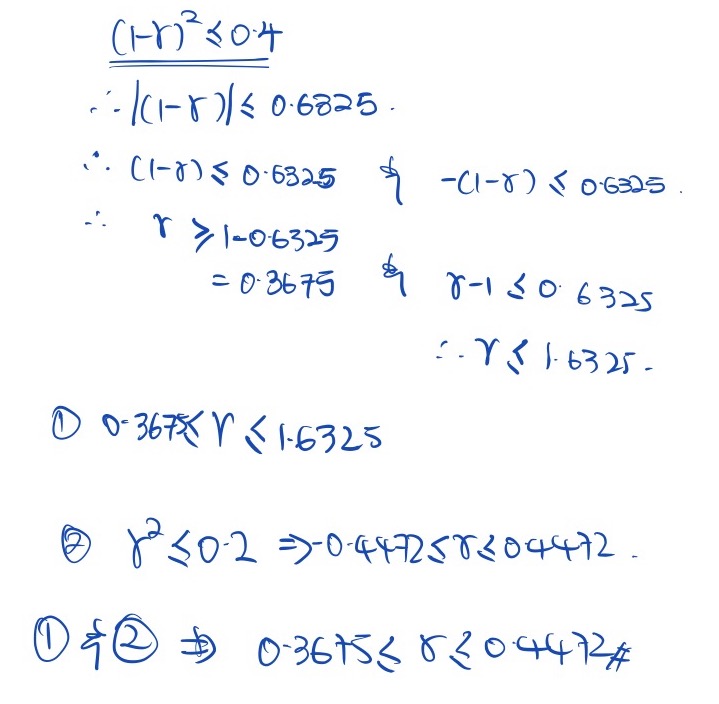 (1-r)² ≤ 0.4
∴ |(1-r)| ≤ 0.6325.
∴ (1-r) ≤ 0.6325 & -(1-r) ≤ 0.6325.
∴ r ≥ 1-0.6325
= 0.3675 & r-1 ≤ 0.6325
∴ r ≤ 1.6325.
① 0.3675 ≤ r ≤ 1.6325
② r² ≤ 0.2 ⇒ -0.4472 ≤ r ≤ 0.4472.
① & ② ⇒ 0.3675 ≤ r ≤ 0.4472 #